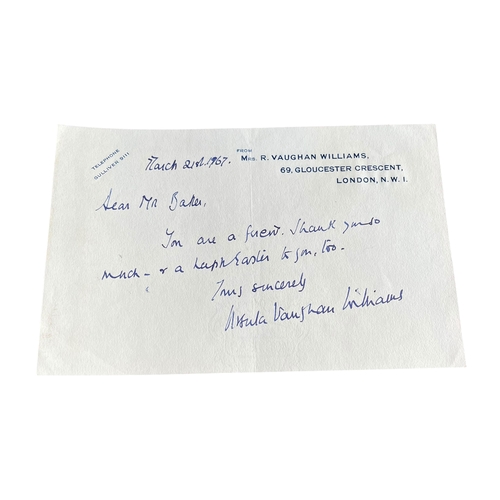 TELEPHONE
GULLIVER 9111
FROM
MRS. R. VAUGHAN WILLIAMS,
69, GLOUCESTER CRESCENT,
LONDON, N.W. 1.
March 21st. 1967.
Dear Mr Baker,
You are a friend. Thank you so
much — & a happy Easter to you, too.
Yours sincerely
Ursula Vaughan Williams